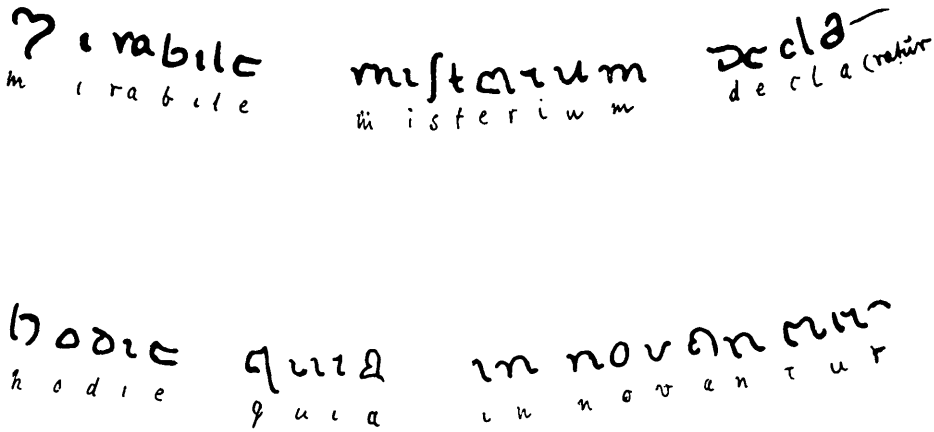 Mirabile misterium decla
m i r a b i l e m i s t e r i u m d e c l a (ratur
hodie quia innovantur
h o d i e q u i a i n n o v a n t u r